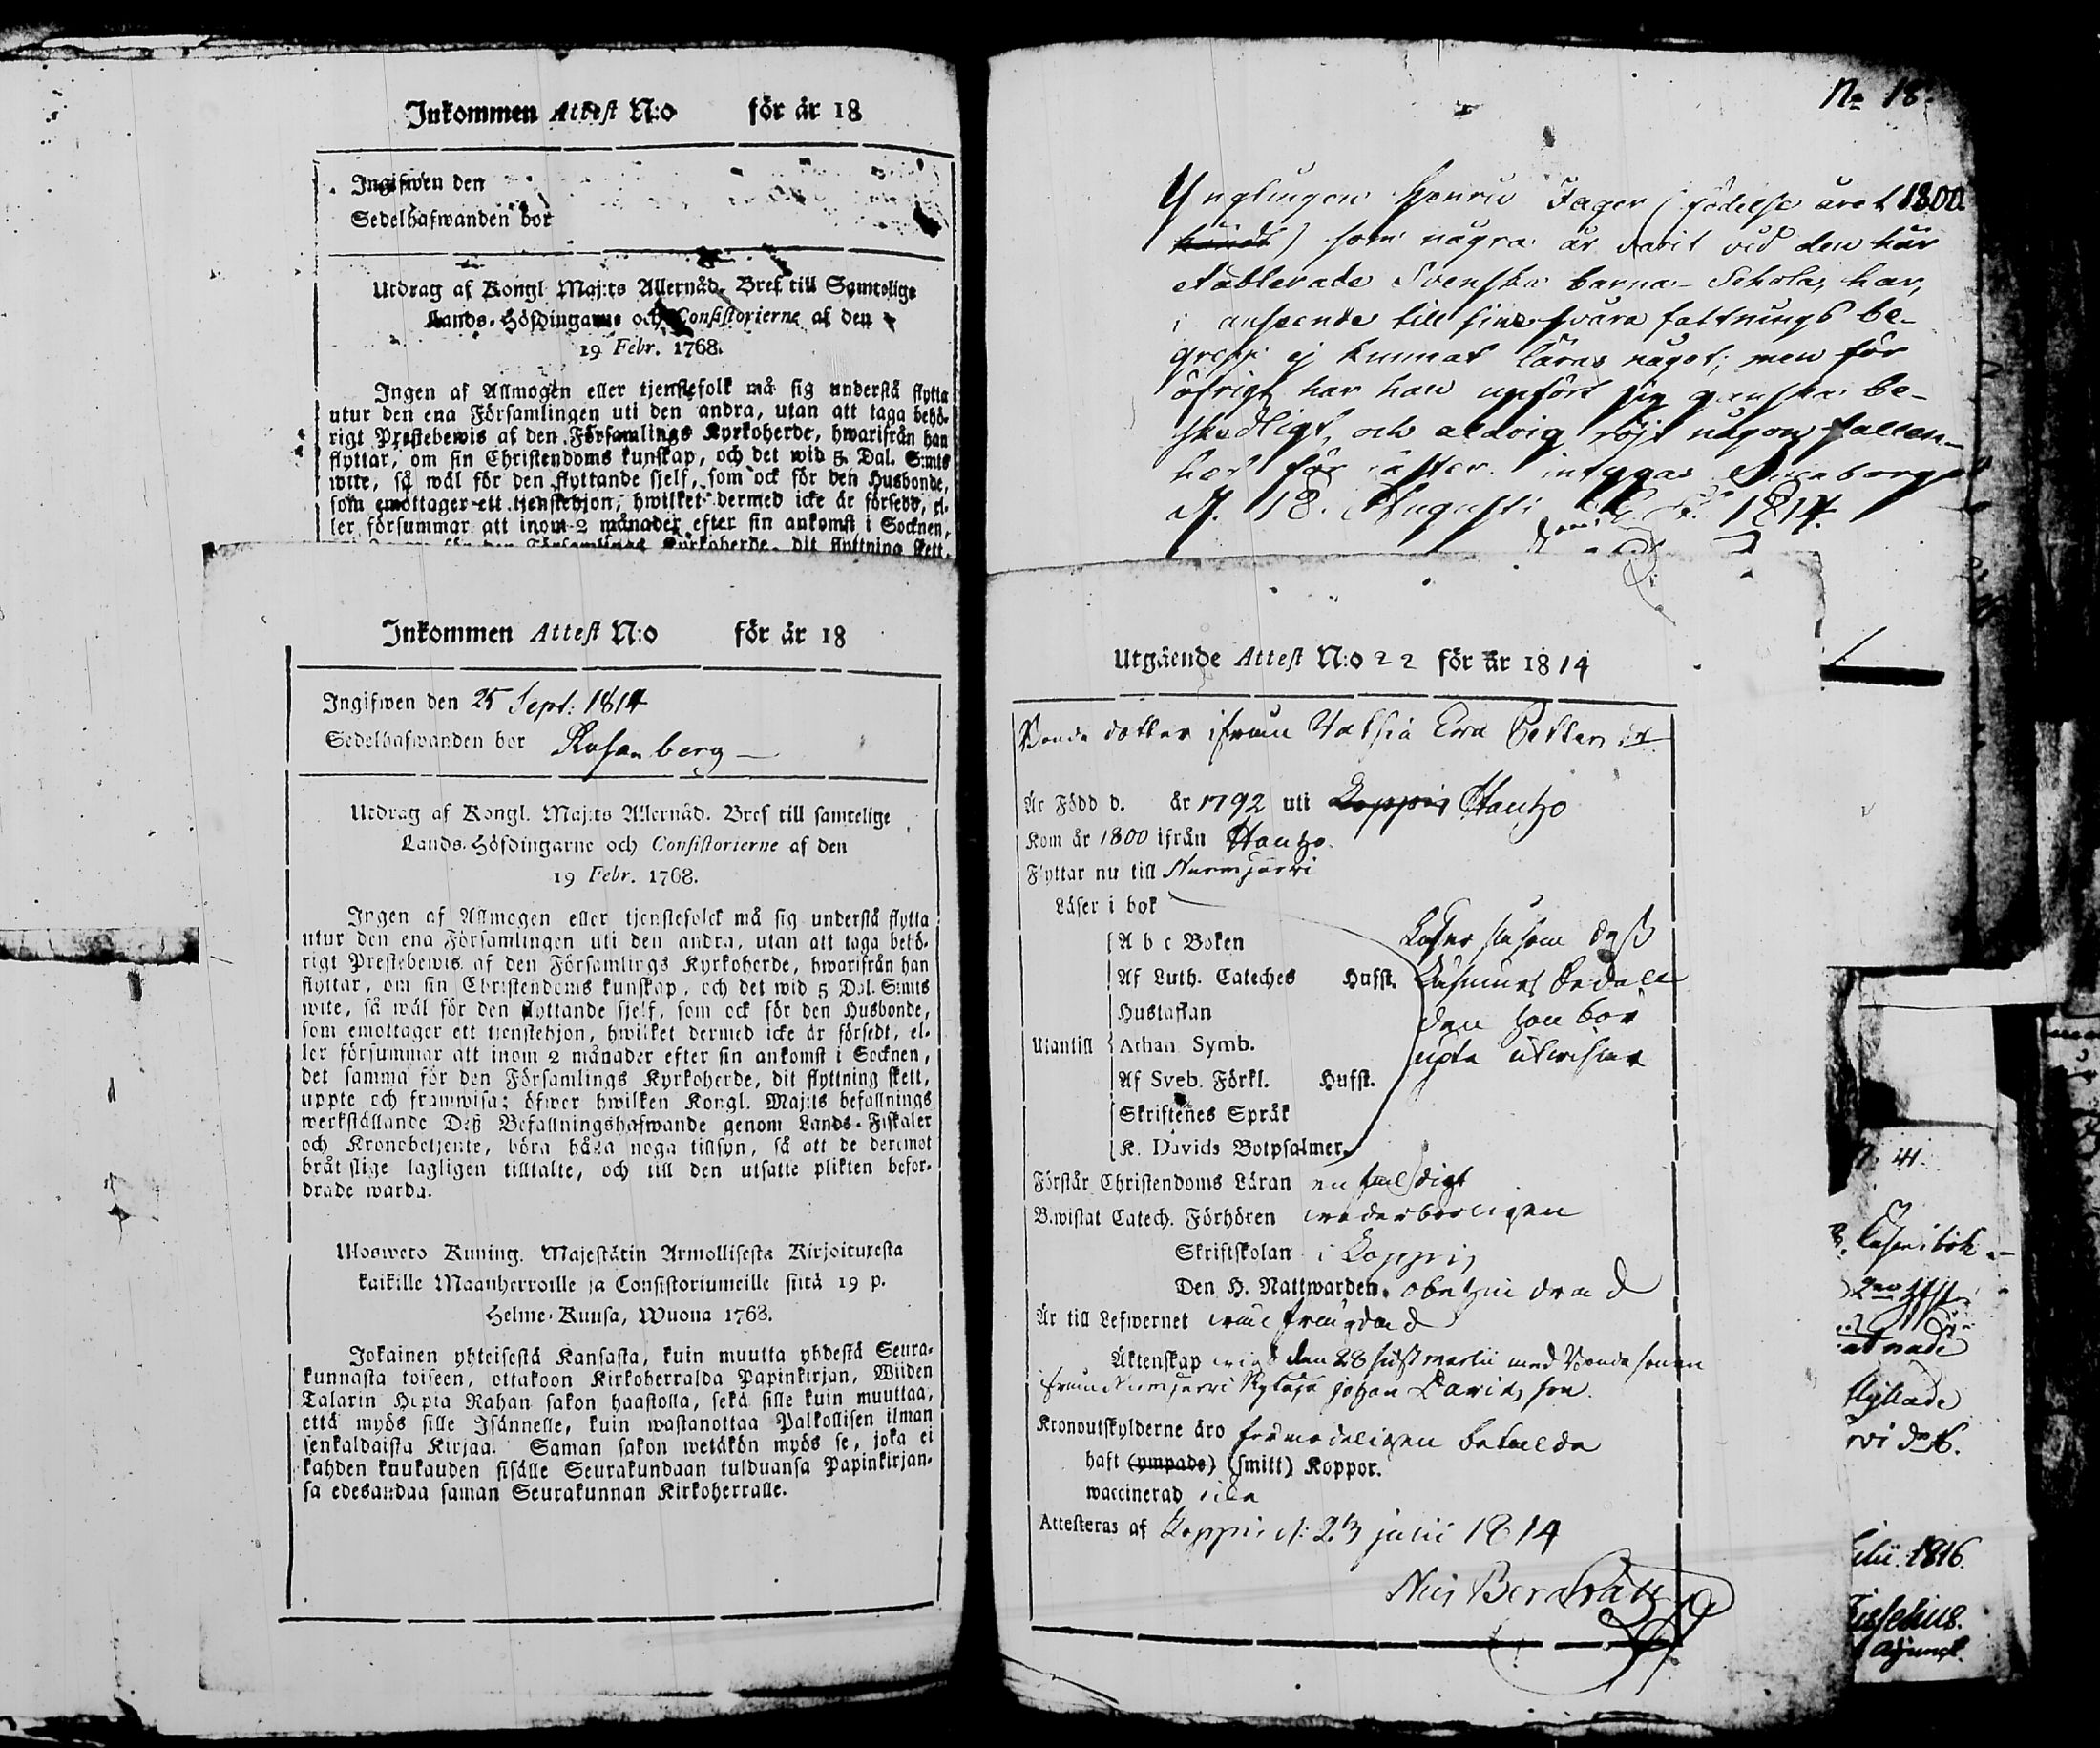 Inkommen Attest N:o för år 18
Ingifwen den
Sedelhafwanden bor
Utdrag af Kongl Maj:ts Allernåd. Bref till Samtelige
Lands-Höfdingarne och Consistorierne af den
19 Febr. 1768.
Ingen af Allmogen eller tjenstefolk må sig understå flytta
utur den ena Församlingen uti den andra, utan att taga behö-
rigt Prestebewis af den Församlings Kyrkoherde, hwarifrån han
flyttar, om sin Christendoms kunskap, och det wid 5 Dal. S:mts
wite, så wäl för den flyttande sjelf, som ock för den Husbonde,
som emottager ett tjenstehjon, hwilket dermed icke är försedt, el-
ler försummar att inom 2 månader efter sin ankomst i Socknen,
Församlings Kyrkoherde, dit flyttning skett,
Inkommen Attest N:o för år 18
Ingifwen den 25 Sept: 1814
Sedelhafwanden bor Rosenberg
Utdrag af Kongl. Maj:ts Allernåd. Bref till samtelige
Lands-Höfdingarne och Consistorierne af den
19 Febr. 1768.
Ingen af Allmogen eller tjenstefolck må sig understå flytta
utur den ena Församlingen uti den andra, utan att taga behö-
rigt Prestebewis af den Församlings Kyrkoherde, hwarifrån han
flyttar, om sin Christendoms kunskap, och det wid 5 Dal. S:mts
wite, så wäl för den flyttande sjelf, som ock för den Husbonde,
som emottager ett tjenstehjon, hwilket dermed icke är försedt, el-
ler försummar att inom 2 månader efter sin ankomst i Socknen,
det samma för den Församlings Kyrkoherde, dit flyttning skett,
uppte och framwisa; öfwer hwilken Kongl. Maj:ts befallnings
werkställande Deß Befallningshafwande genom Lands-Fiskaler
och Kronobetjente, böra hålla noga tillsyn, så att de deremot
bråtslige lagligen tilltalte, och till den utsatte plikten befor-
drade warda.
Ulosweto Kuning. Majestätin Armollisesta Kirjoituxesta
kaikille Maanherroille ja Consistoriumeille siitä 19 p.
Helme-Kuusa, Wuona 1768.
Jokainen yhteisestä Kansasta, kuin muutta yhdestä Seura-
kunnasta toiseen, ottakoon Kirkoherralda Papinkirjan, Wiiden
Talarin Hopia Rahan sakon haastolla, sekä sille kuin muuttaa,
että myös sille Isännelle, kuin wastanottaa Palkollisen ilman
senkaldaista Kirjaa. Saman sakon wetäkön myös se, joka ei
kahden kuukauden sisälle Seurakundaan tulduansa Papinkirjan-
sa edesandaa saman Seurakunnan Kirkoherralle.
No 18.
Ynglingen Henric Jager (födelse året 1800
) som några år varit vid den här
etablerade Svenska barna-Schola, har,
i anseende till sine svåra fattnings be-
grepp ej kunnat läras något; men för
öfrigt har han upfört sig ganska be-
skedligt, och aldrig röjt någon fallen-
het för laster. intygas
d. 18. Augusti 1814.
Utgående Attest N:o 22 för år 1814
Bonde dotter ifrån Eva Petters dr
Är Född d. år 1792 uti Loppis Hausjo
Kom år 1800 ifrån Hausjo
Flyttar nu till Nurmijärvi
Läser i bok
A b c Boken
Af Luth. Cateches Husst.
Hustaflan
Utantill Athan Symb.
Af Sveb. Förkl. Husst.
Skriftenes Språk
K. Davids Botpsalmer
den hon bör
upte utwisar
Förstår Christendoms Läran enfaldigt
Bewistat Catech. Förhören wederbörligen
Skriftskolan i Loppis
Den H. Nattwarden obehindrad
Är till Lefwernet
Äktenskap den 28 med Bonde sonen
ifrån Nurmijärvi johan Davids son.
Kronoutskylderne äro förmodeligen betalda
haft (ympade) (smitt) Koppor.
waccinerad icke
Attesteras af Loppis d: 23 julii 1814
N: 41.
Läser i bok
flyttade
1816.
Adjunct.